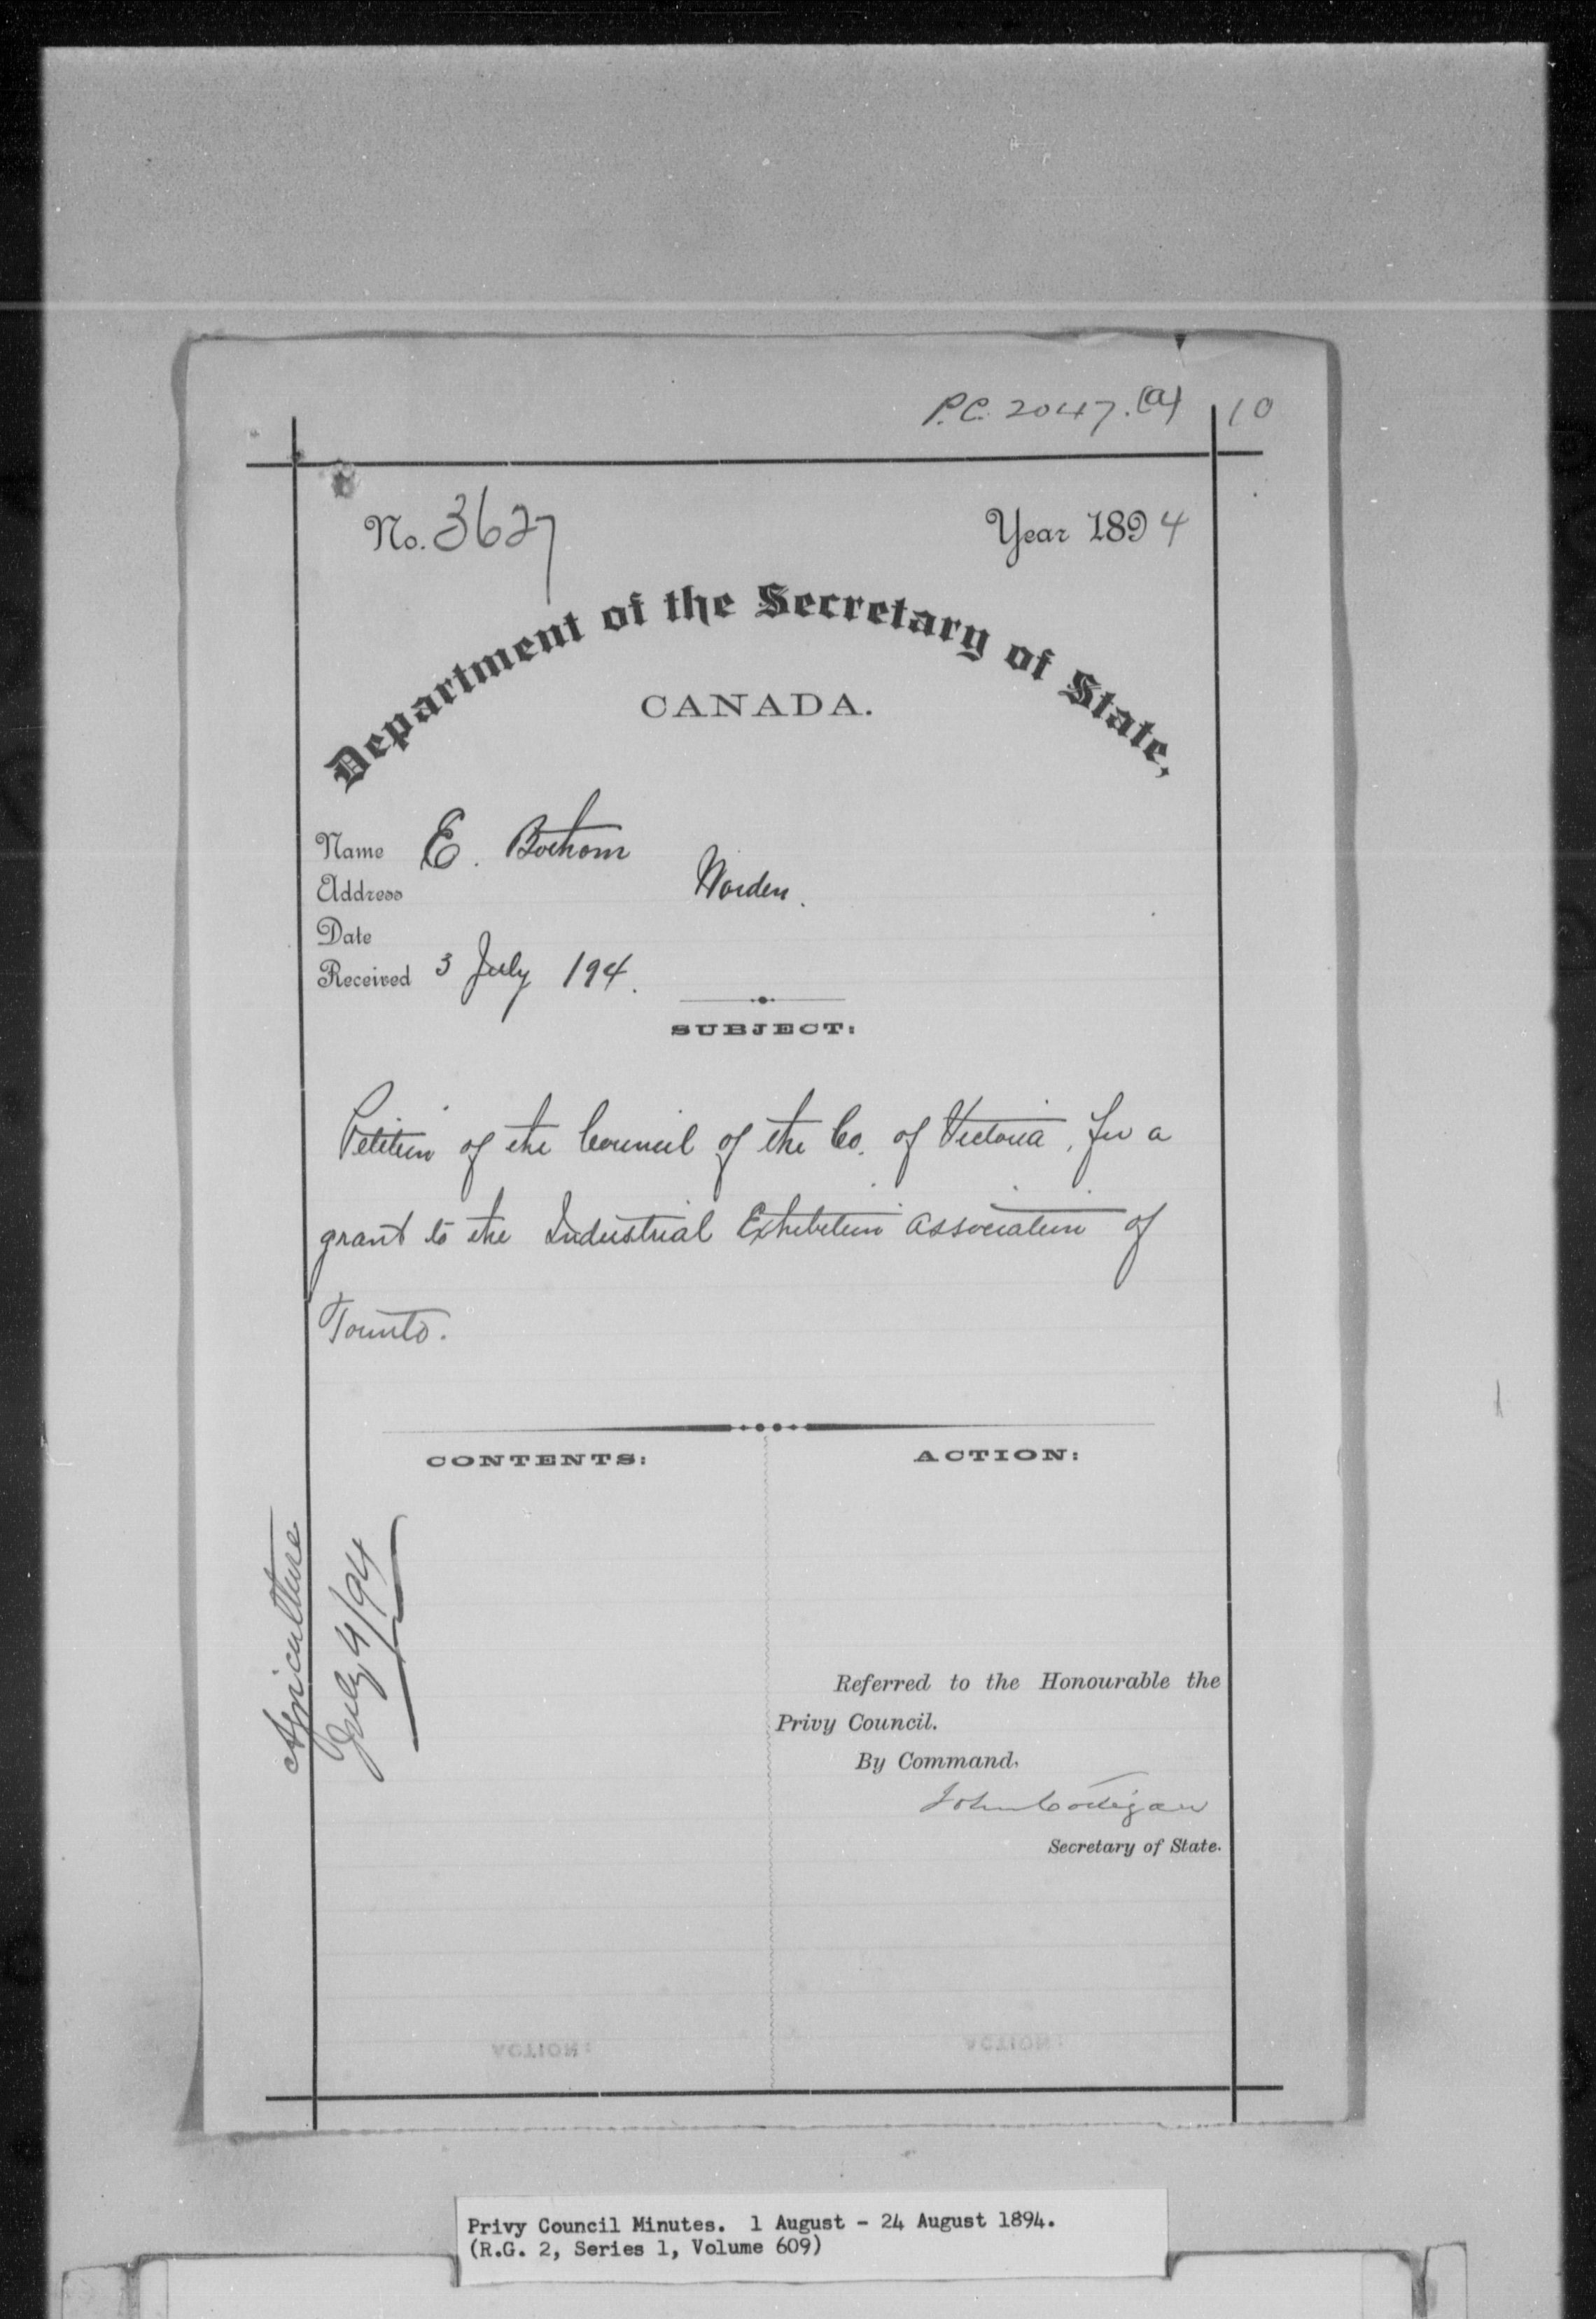 P.C. 2047.(a) 10
No. 3627 Year 1894
Department of the Secretary of State,
CANADA.
Name E.
Address Warden.
Date
Received 3 July 194.
SUBJECT:
Petition of the Council of the Co. of Victoria, for a
grant to the Industrial Exhibition Association of
Toronto.
CONTENTS: ACTION:
Agriculture
July 4/94
Referred to the Honourable the
Privy Council.
By Command,
John Costigan
Secretary of State.
ACTION: ACTION:
Privy Council Minutes. 1 August - 24 August 1894.
(R.G. 2, Series 1, Volume 609)